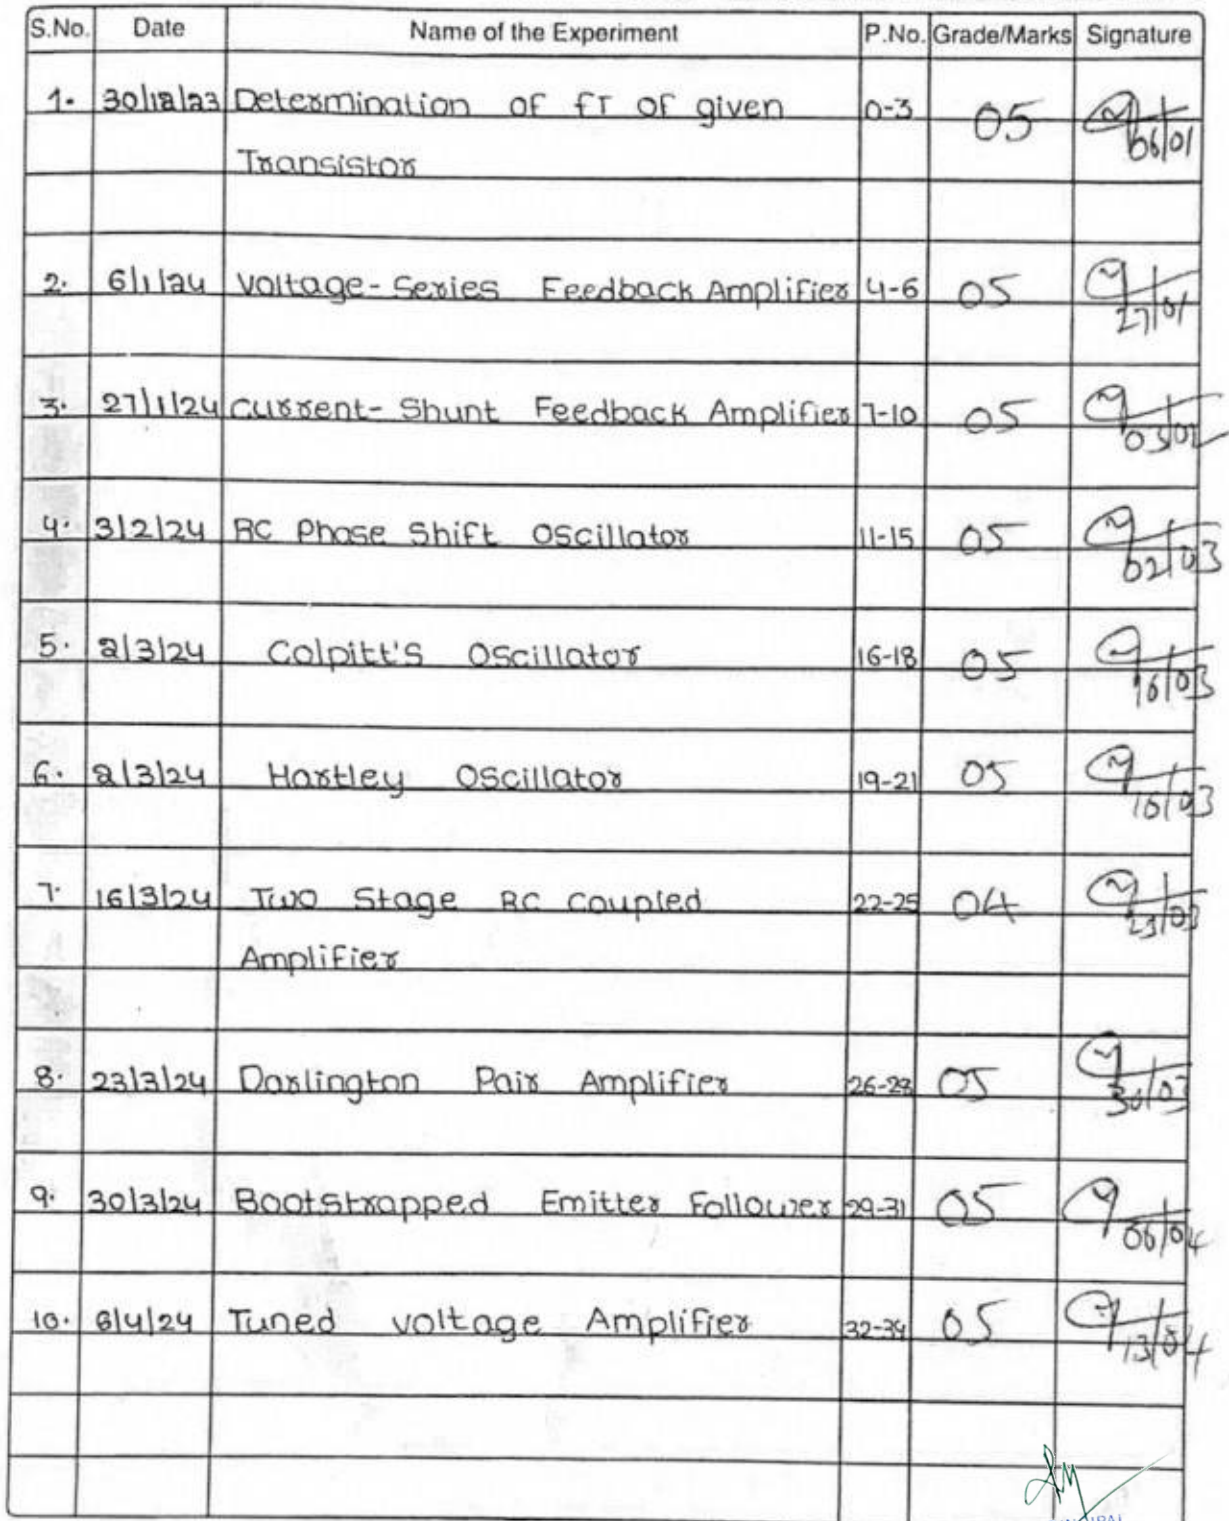 S.No. Date Name of the Experiment P.No. Grade/Marks Signature
1. 30/12/23 Determination of fT of given 0-3 05 06/01
Transistor
2. 6/1/24 Voltage-Series Feedback Amplifier 4-6 05 27/01
3. 27/1/24 Current-Shunt Feedback Amplifier 7-10 05 03/02
4. 3/2/24 RC Phase Shift Oscillator 11-15 05 02/03
5. 2/3/24 Colpitt's Oscillator 16-18 05 16/03
6. 2/3/24 Hartley Oscillator 19-21 05 16/03
7. 16/3/24 Two Stage RC Coupled 22-25 04 23/03
Amplifier
8. 23/3/24 Darlington Pair Amplifier 26-28 05 30/03
9. 30/3/24 Bootstrapped Emitter Follower 29-31 05 06/04
10. 6/4/24 Tuned voltage Amplifier 32-34 05 13/04